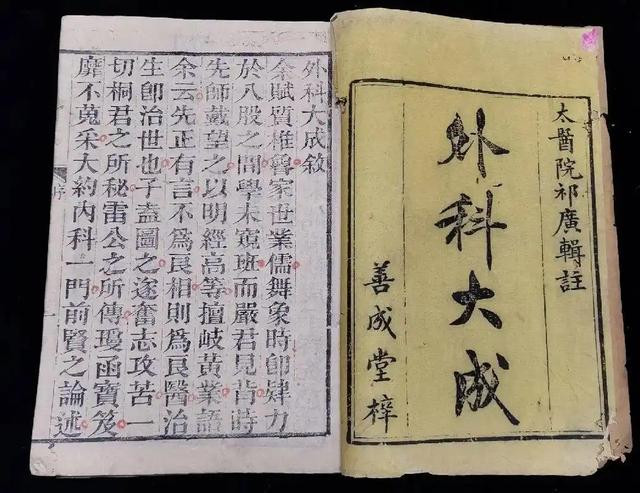 太醫院祁廣輯註
外科大成
善成堂梓
外科大成敘
余賦質椎魯家世業儒舞象時卽肄力
於八股之間學未窺班而嚴君見背蒔
先師戴望之以明經高等擅岐黃業語
余云先正有言不爲良相則爲良醫治
生卽治世也子盍圖之遂奮志攻苦一
切桐君之所秘雷公之所傳瓊函寶笈
靡不蒐采大約內科一門前賢之論述
序